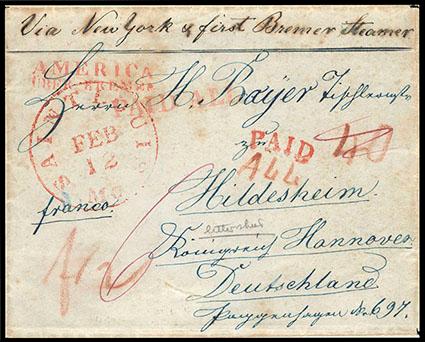 Via New York & first Bremer Steamer
AMERICA
ÜBER BREMEN
PAID ALL
SAINT LOUIS
FEB
12
MO
Herrn H. Bayer Tischlermstr
zu
PAID
40
A44
Hildesheim
franco.
Königreich Hannover
Deutschland
Poggenhagen No 697.